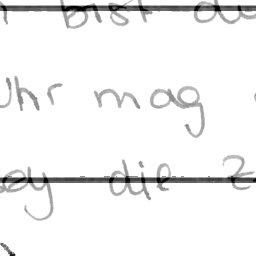 bist du
Uhr mag
ey die z